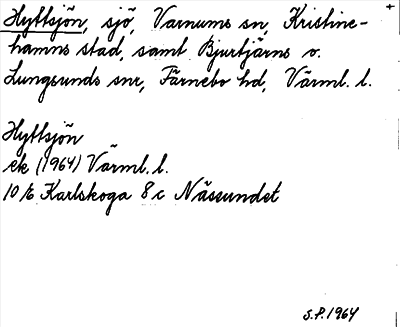 Hyttsjön, sjö, Varnums sn, Kristine-
hamns stad, samt Bjurtjärns o.
Lungsunds snr, Färnebo hd, Värml. l.
Hyttsjön
ek (1964) Värml. l.
10 E Karlskoga 8 c Nässundet
S.P. 1964